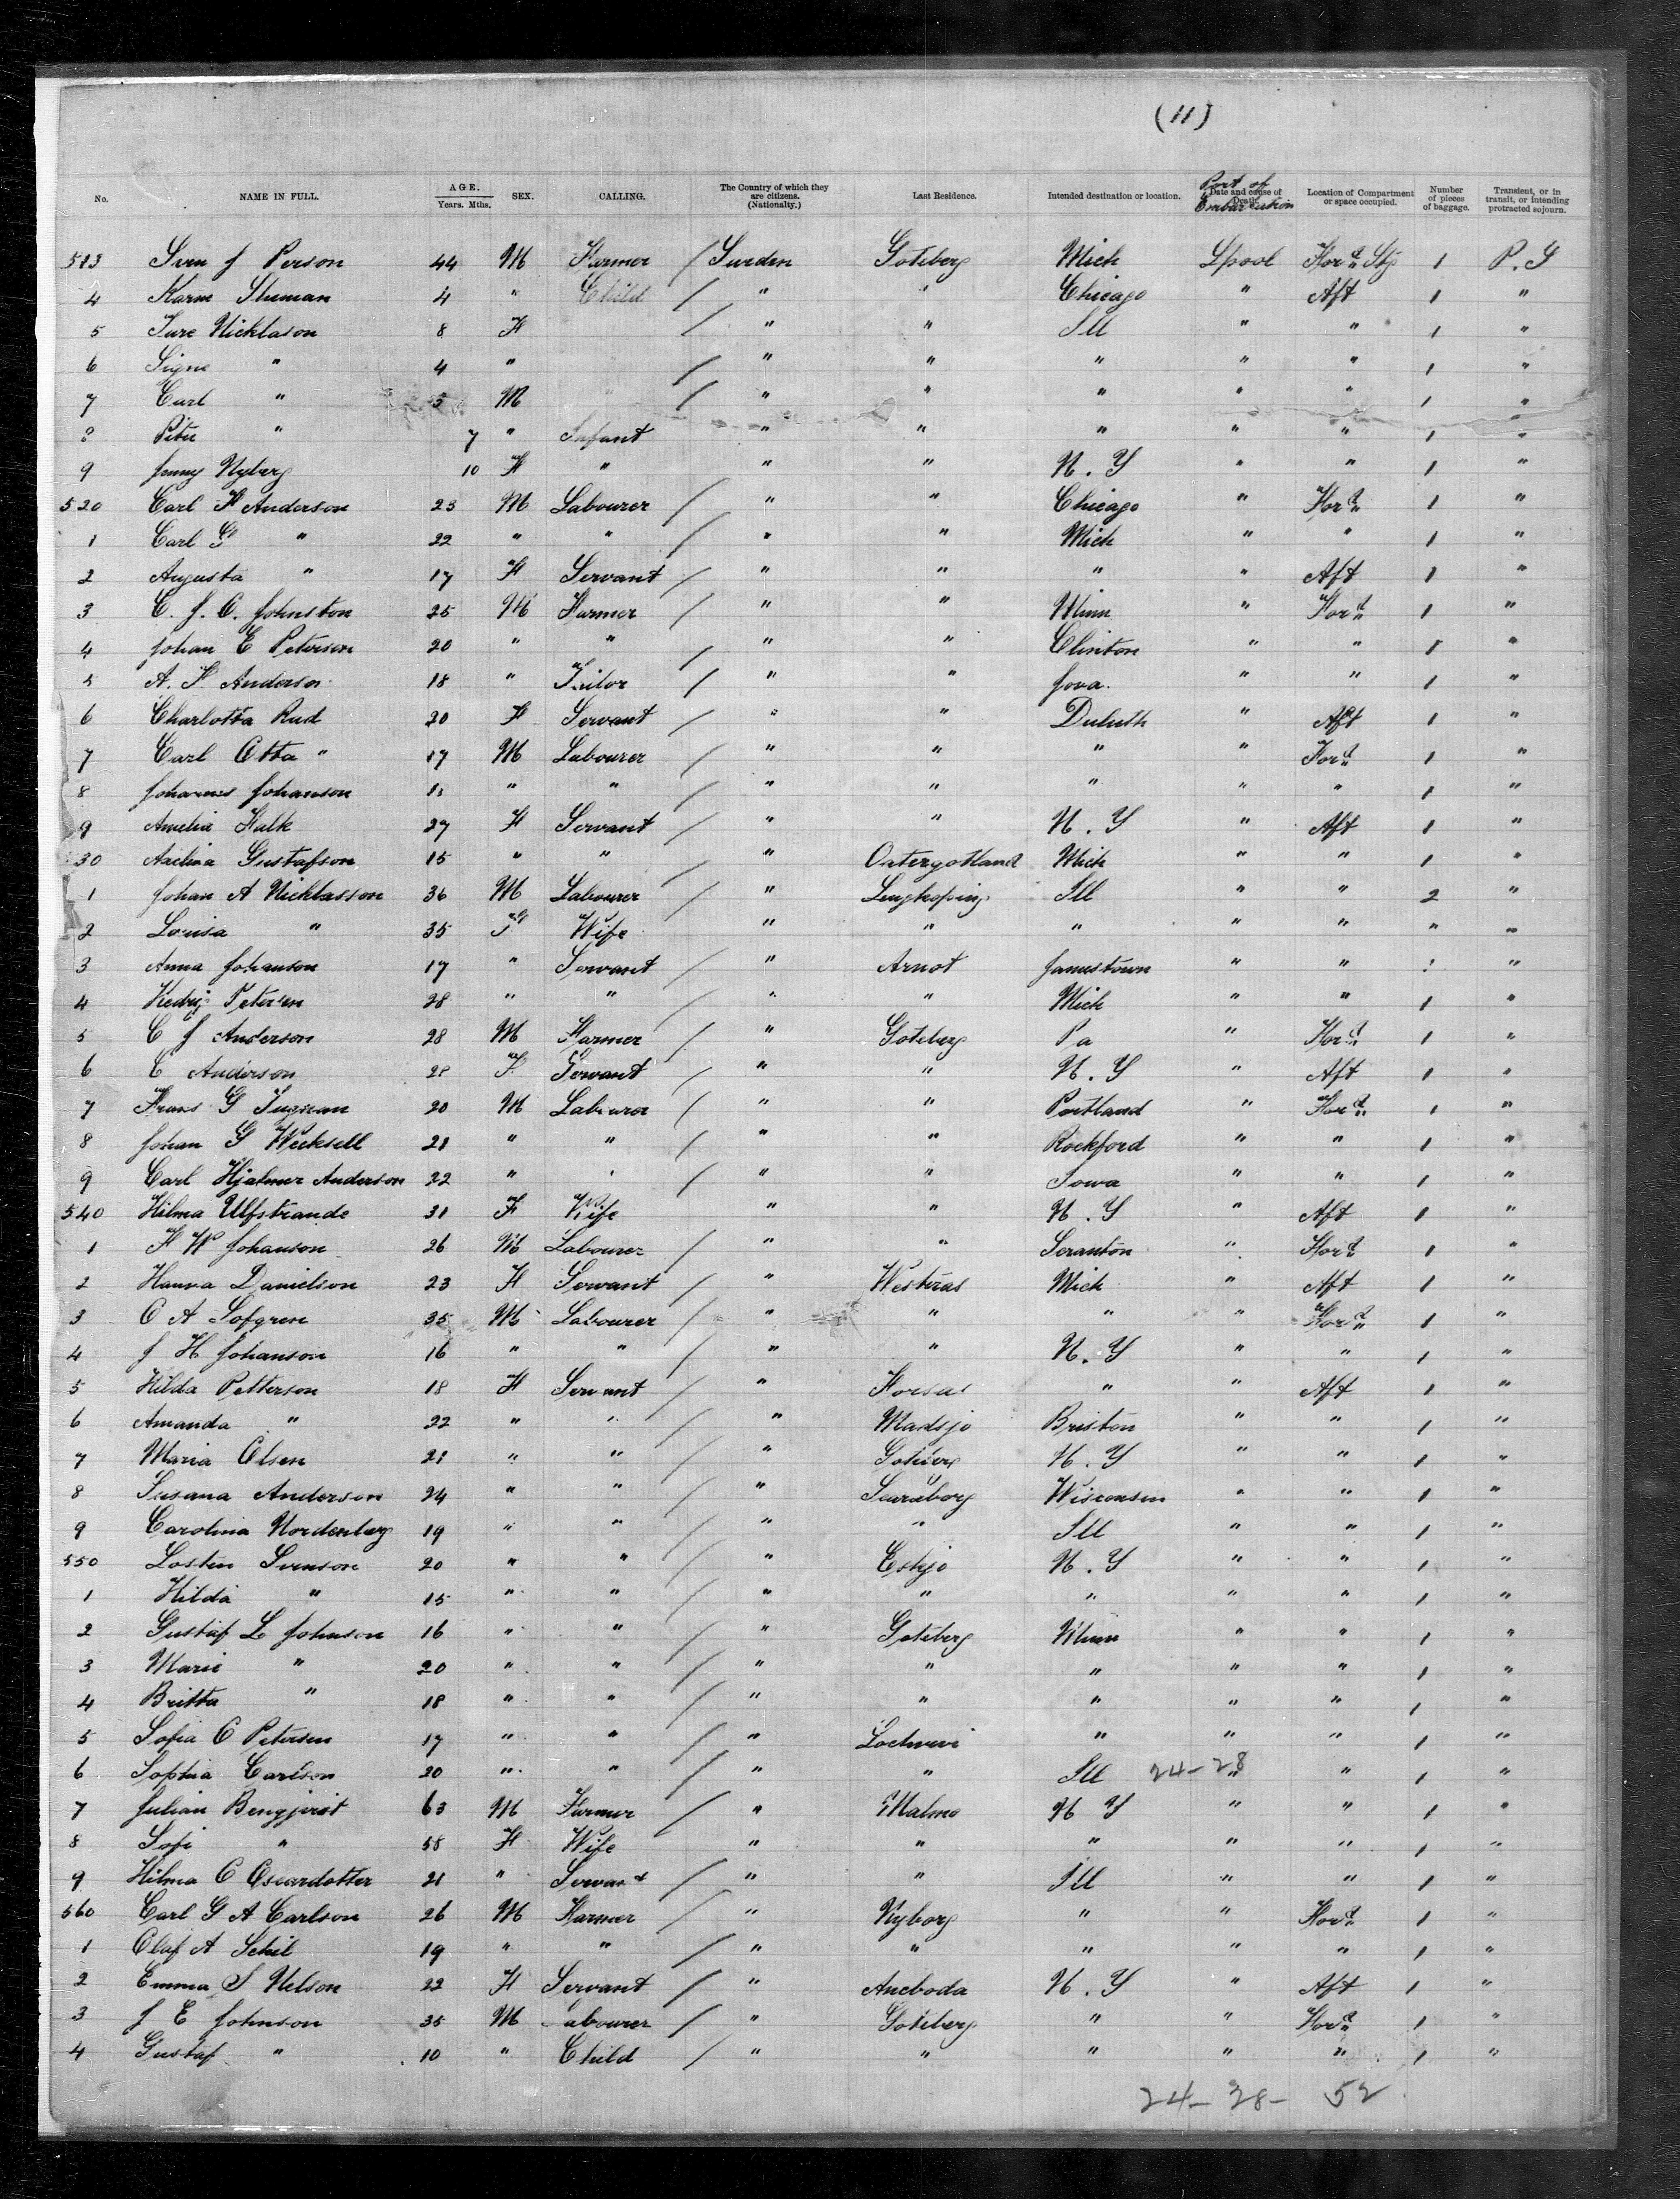 (11)
Port of Embarkation
No. NAME IN FULL. AGE. Years. Mths. SEX. CALLING. The Country of which they are citizens. (Nationality.) Last Residence. Intended destination or location. Date and cause of Death. Location of Compartment or space occupied. Number of pieces of baggage. Transient, or in transit, or intending protracted sojourn.
513 Sven J Person 44 M Farmer / Sweden Goteberg Mich Lpool For'd Stg 1 P. S
4 Karin 4 " Child / " " Chicago " Aft 1 "
5 Ture Nicklason 8 F / " " Ill " " 1 "
6 Signe " 4 " / " " " " " 1 "
7 Carl " 3 M " / " " " " " 1 "
8 Peter " 7 " Infant " " " " " 1 "
9 Jenny Nyberg 10 F " " " N. Y " " 1 "
520 Carl F Anderson 23 M Labourer / " " Chicago " For'd 1 "
1 Carl G " 22 " " / " " Mich " " 1 "
2 Augusta " 17 F Servant / " " " " Aft 1 "
3 C. J. O. Johnston 25 M Farmer / " " Minn " For'd 1 "
4 Johan E Peterson 20 " " / " " Clinton " " 1 "
5 A. F. Anderson 18 " Tailor / " " Iova. " " 1 "
6 Charlotta Rud 20 F Servant / " " Duluth " Aft 1 "
7 Carl Otta " 17 M Labourer / " " " " For'd 1 "
8 Johannes Johanson " " / " " " " " 1 "
9 Amelia Falk 27 F Servant / " " N. Y " Aft 1 "
530 Axelina Gustafson 15 " " / " Ostergotland Mich " " 1 "
1 Johan A Nicklasson 36 M Labourer / " Lingkoping Ill " " 2 "
2 Louisa " 35 F Wife " " " " " " "
3 Anna Johanson 17 " Servant / " Arnot Jamestown " " 1 "
4 Hedvig Peterson 28 " " / " " Mich " " 1 "
5 C J Anderson 28 M Farmer / " Goteberg Pa " For'd 1 "
6 C Anderson 28 F Servant / " " N. Y " Aft 1 "
7 Frans G 20 M Labourer / " " Portland " For'd 1 "
8 Johan G Wecksell 21 " " / " " Rockford " " 1 "
9 Carl Hjalmer Anderson 22 " " / " " Iowa " " 1 "
540 Hilma Ulfstrande 31 F Wife " " N. Y " Aft 1 "
1 F W Johanson 26 M Labourer / " " Scranton " For'd 1 "
2 Hanna Danielson 23 F Servant / " Westeras Mich " Aft 1 "
3 O A Lofgren 35 M Labourer / " " " " For'd 1 "
4 J H Johanson 16 " " / " " N. Y " " 1 "
5 Hilda Petterson 18 F Servant / " Forsas " " Aft 1 "
6 Amanda " 22 " " / " Madsjo Briston " " 1 "
7 Maria Olsen 21 " " / " Goteberg N. Y " " 1 "
8 Susana Anderson 24 " " / " Scaraborg Wisconsin " " 1 "
9 Carolina Nordenberg 19 " " / " " Ill " " 1 "
550 Svenson 20 " " / " Eskjo N. Y " " 1 "
1 Hilda " 15 " " / " " " " " 1 "
2 Gustaf L Johnson 16 " " / " Goteberg Minn " " 1 "
3 Marie " 20 " " / " " " " " 1 "
4 Britta " 18 " " / " " " " " 1 "
5 Sofia C Peterson 17 " " / " " " " 1 "
6 Sophia Carlson 20 " " / " " Ill 24-28 " " 1 "
7 Julian Bengqvist 63 M Farmer / " Malmo N Y " " 1 "
8 Sofi " 58 F Wife " " " " " 1 "
9 Hilma C Oscardotter 21 " Servant / " " Ill " " 1 "
560 Carl G A Carlson 26 M Farmer / " Nyborg " " For'd 1 "
1 Olaf A Schil 19 " " / " " " " " 1 "
2 Emma S Nelson 22 F Servant / " Aneboda N. Y " Aft 1 "
3 J E Johnson 35 M Labourer / " Goteberg " " For'd 1 "
4 Gustaf " 10 " Child / " " " " " 1 "
24-28- 52